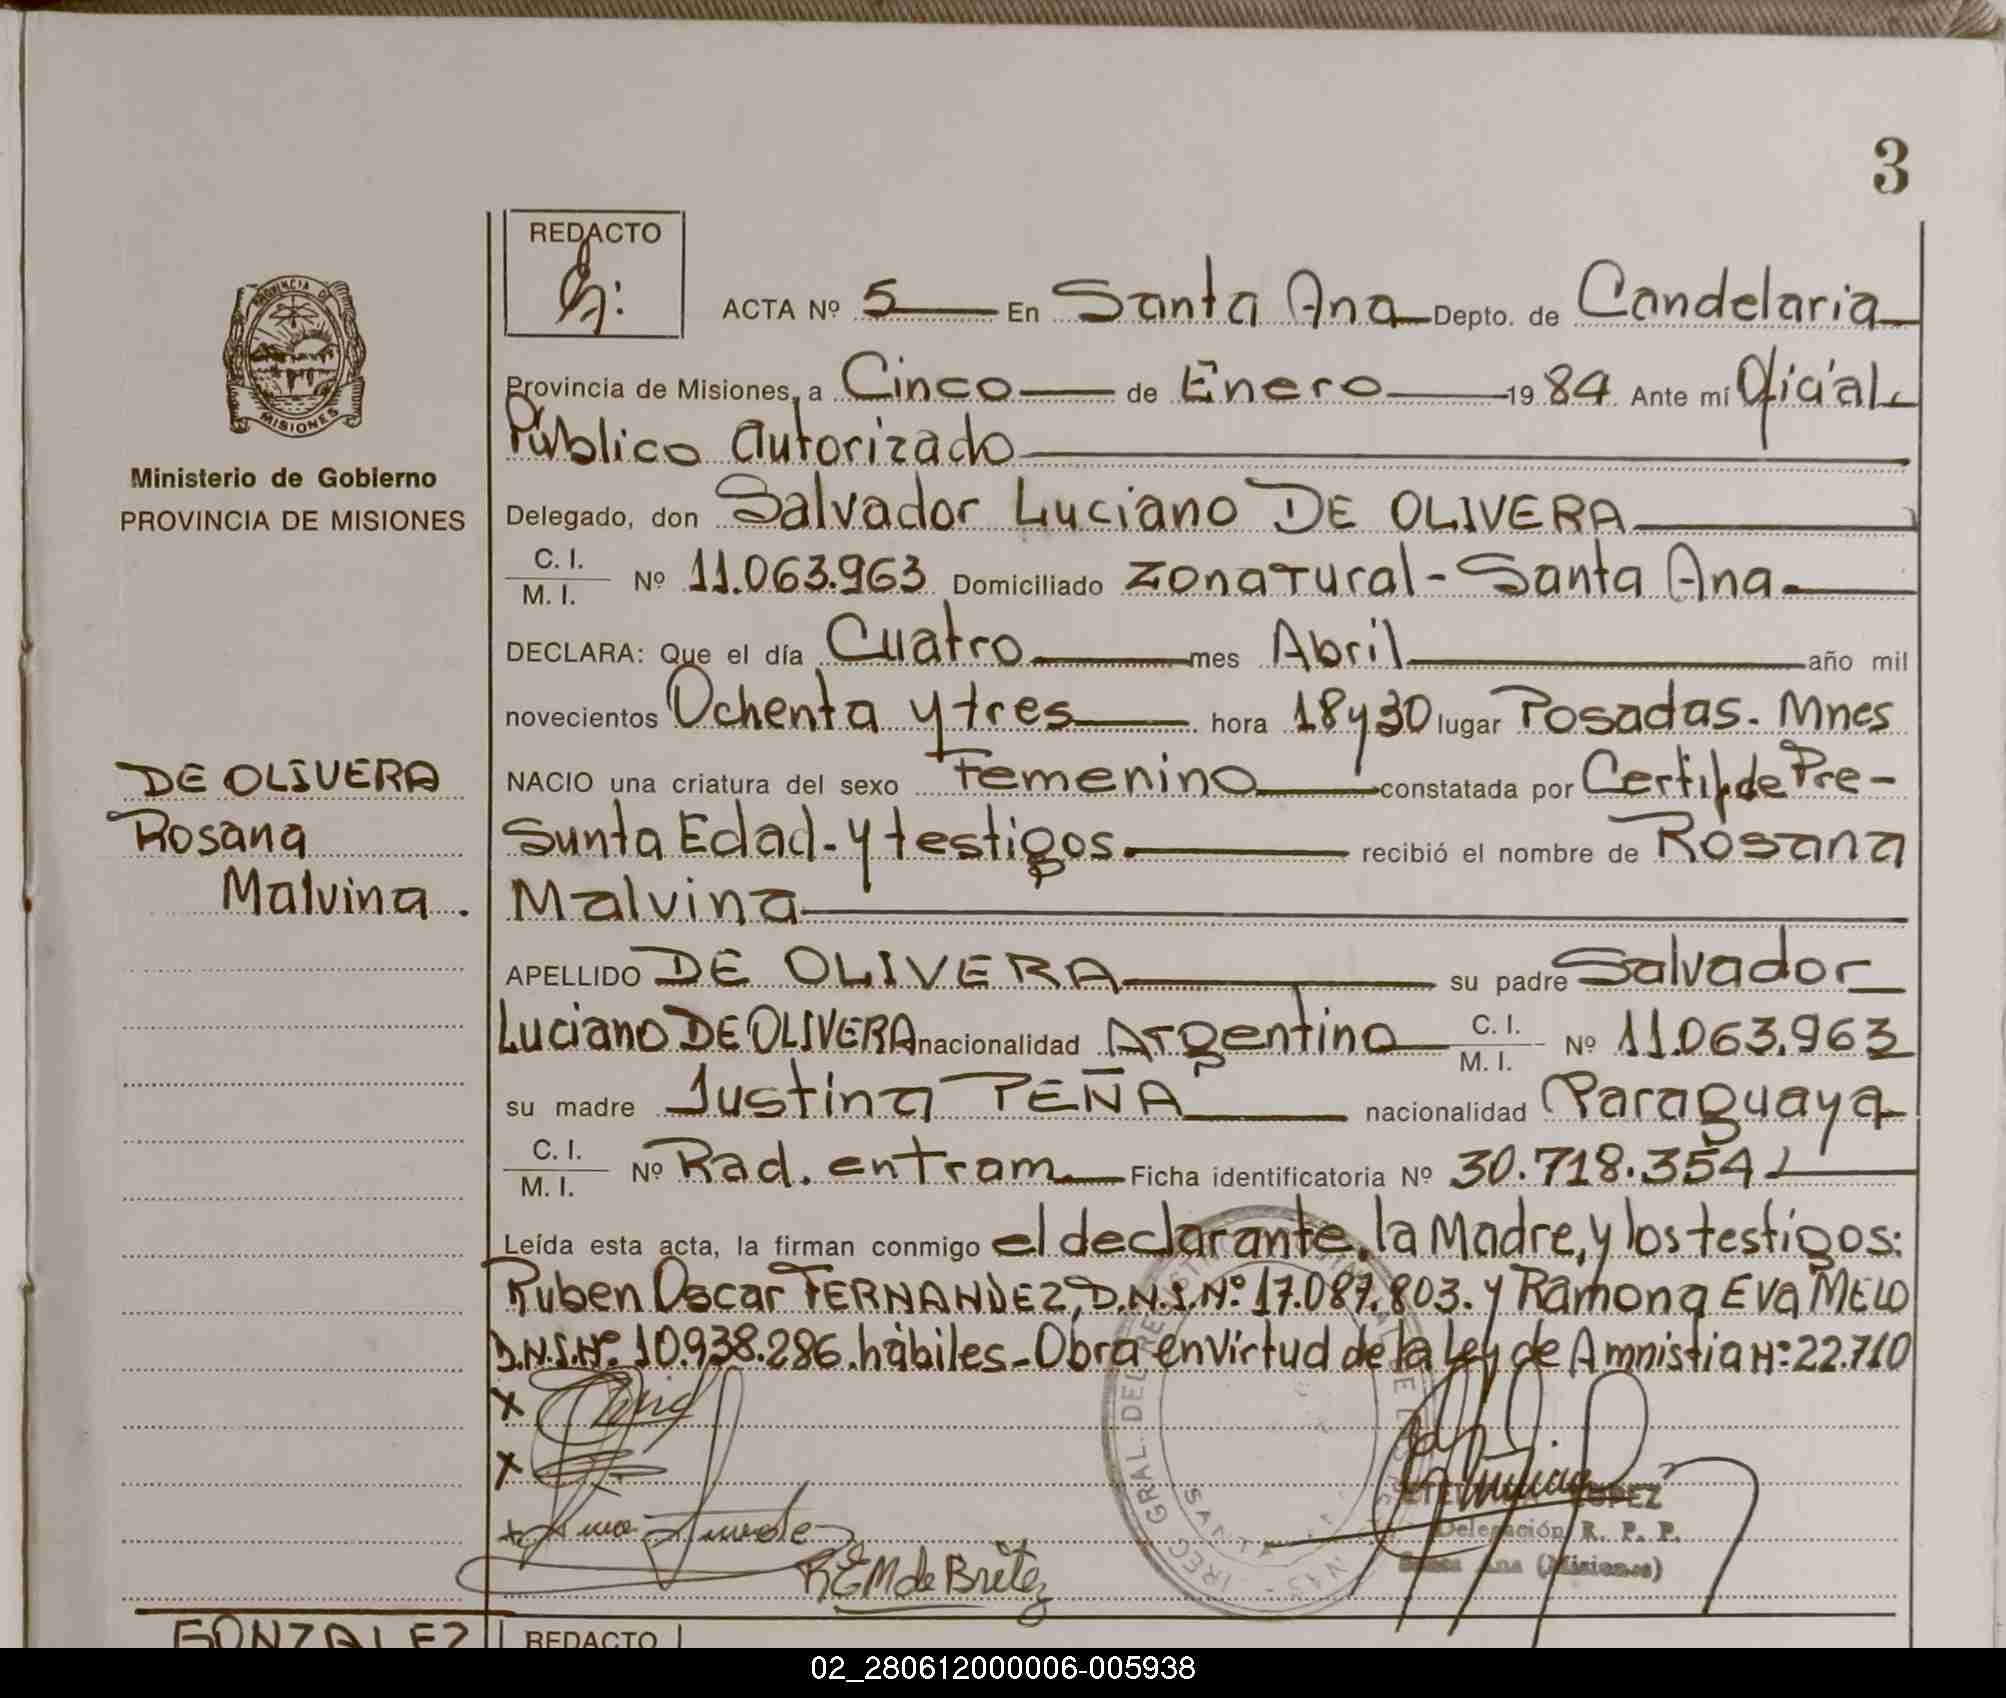 3
REDACTO
ACTA Nº 5 En Santa Ana Depto. de Candelaria
Provincia de Misiones, a Cinco de Enero 1984 Ante mí Oficial
Público autorizado
PROVINCIA DE
MISIONES
Ministerio de Gobierno
PROVINCIA DE MISIONES
Delegado, don Salvador Luciano DE OLIVERA
C. I.
M. I. Nº 11.063.963 Domiciliado Zona rural - Santa Ana
DECLARA: Que el día Cuatro mes Abril año mil
novecientos Ochenta y tres hora 18 y 30 lugar Posadas. Mnes
NACIO una criatura del sexo Femenino constatada por Certif. de Pre-
sunta Edad - y testigos. recibió el nombre de Rosana
Malvina
DE OLIVERA
Rosana
Malvina.
APELLIDO DE OLIVERA su padre Salvador
Luciano DE OLIVERA nacionalidad Argentino C. I.
M. I. Nº 11.063.963
su madre Justina PEÑA nacionalidad Paraguaya
C. I.
M. I. Nº Rad. en tram Ficha identificatoria Nº 30.718.354
Leída esta acta, la firman conmigo el declarante, la Madre, y los testigos:
Ruben Oscar FERNANDEZ, D.N.I.Nº 17.087.803. y Ramona Eva MELO
D.N.I.Nº 10.938.286. hábiles - Obra en virtud de la Ley de Amnistia Nº 22.710
x
x
x
R E M de Britez
LOPEZ
Delegación R. P. P.
Santa Ana (Misiones)
GONZALEZ REDACTO
02_280612000006-005938